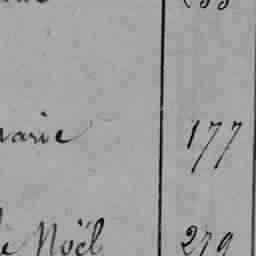 arie 177
de Noël 279